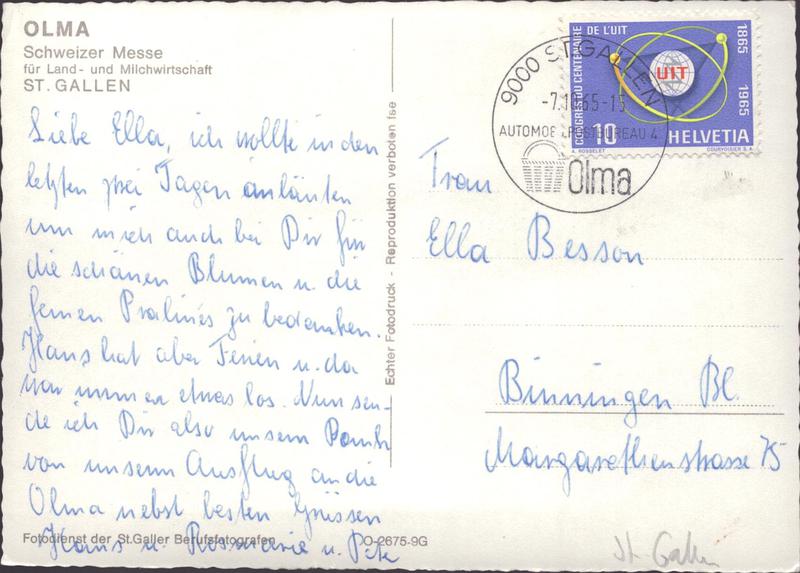 OLMA
Schweizer Messe
für Land- und Milchwirtschaft
ST. GALLEN
Liebe Ella, ich wollte in den
letzten zwei Tagen anläuten
um mich auch bei Dir für
die schönen Blumen u. die
feinen Pralinés zu bedanken.
Hans hat aber Ferien u. da
war immer etwas los. Nun sen-
de ich Dir also unsern Dank
von unserm Ausflug an die
Olma nebst besten Grüssen
Hans u. Rosmarie u.
Fotodienst der St.Galler Berufsfotografen
O-2675-9G
Echter Fotodruck - Reproduktion verboten
9000 ST. GALLEN
-7.10.65-15
AUTOMOB. POSTBUREAU 4
Olma
CONGRES DU CENTENAIRE
DE L'UIT
1865
1965
UIT
10
HELVETIA
A. ROSSELET
COURVOISIER S.A.
Frau
Ella Besson
Binningen Bl.
Margarethenstrasse 75
St Gallen